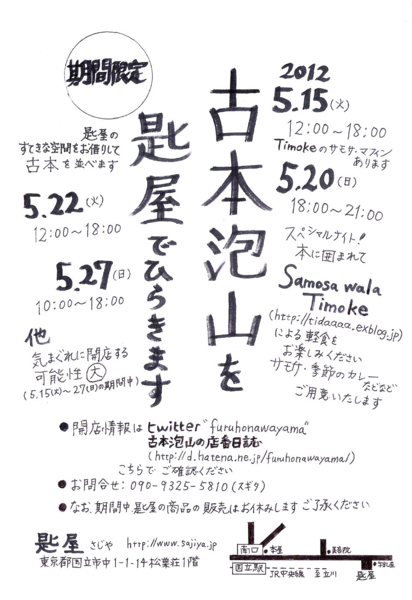 期間限定
古本泡山を
匙屋でひらきます
2012
5.15(火)
12:00〜18:00
Timokeのサモサ・マフィン
あります
5.20(日)
18:00〜21:00
スペシャルナイト!
本に囲まれて
Samosa wala
Timoke
(http://tidaaaa.exblog.jp)
による軽食を
お楽しみください
サモサ・季節のカレー
などなど
ご用意いたします
匙屋の
すてきな空間をお借りして
古本を並べます
5.22(火)
12:00〜18:00
5.27(日)
10:00〜18:00
他
気まぐれに開店する
可能性大
(5.15(火)〜27(日)の期間中)
●開店情報はtwitter "furuhonawayama"
古本泡山の店番日誌
(http://d.hatena.ne.jp/furuhonawayama/)
こちらでご確認ください
●お問合せ:090-9325-5810(スギタ)
●なお、期間中、匙屋の商品の販売はお休みします ご了承ください
匙屋 さじや http://www.sajiya.jp
東京都国立市中1-1-14 松葉荘1階
南口
本屋
美容院
国立駅
JR中央線
至立川
匙屋